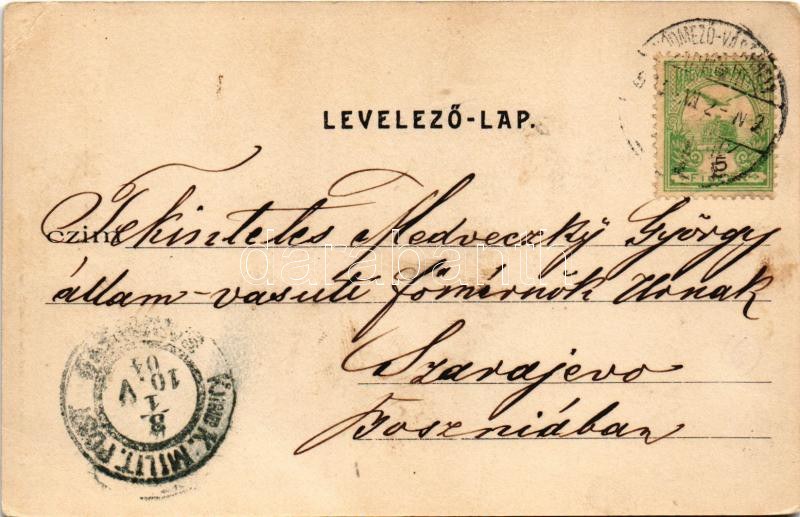 LEVELEZŐ-LAP.
czím Tekintetes Medveczky György
állam-vasuti főmérnök Urnak
Szarajevo
Boszniában
K. MILIT. POST
10. V
04
5
darabanth